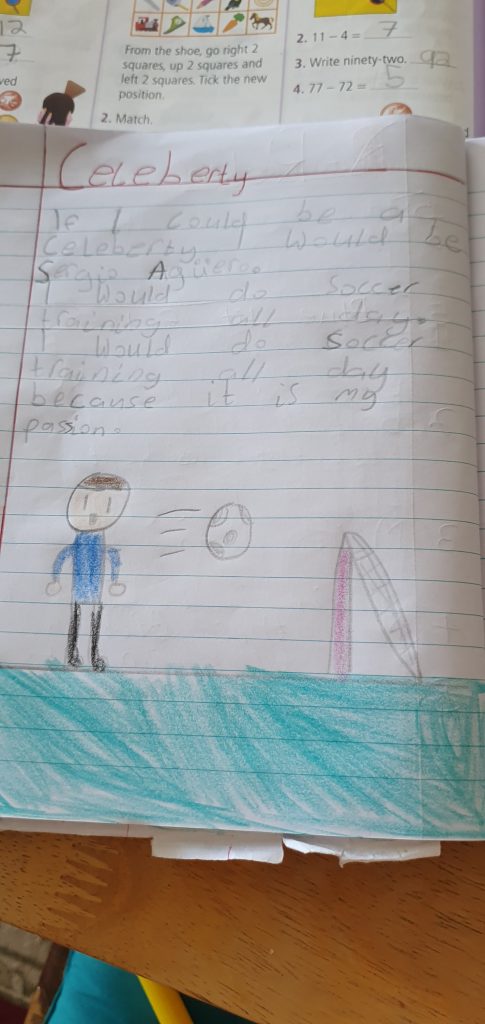 12
7
ved
From the shoe, go right 2
squares, up 2 squares and
left 2 squares. Tick the new
position.
2. Match.
2. 11 – 4 = 7
3. Write ninety-two. 92
4. 77 – 72 = 5
Celeberty
If I could be a
Celeberty I would be
Sergio Agüero.
I would do Soccer
training all day.
I would do Soccer
training all day
because it is my
passion.